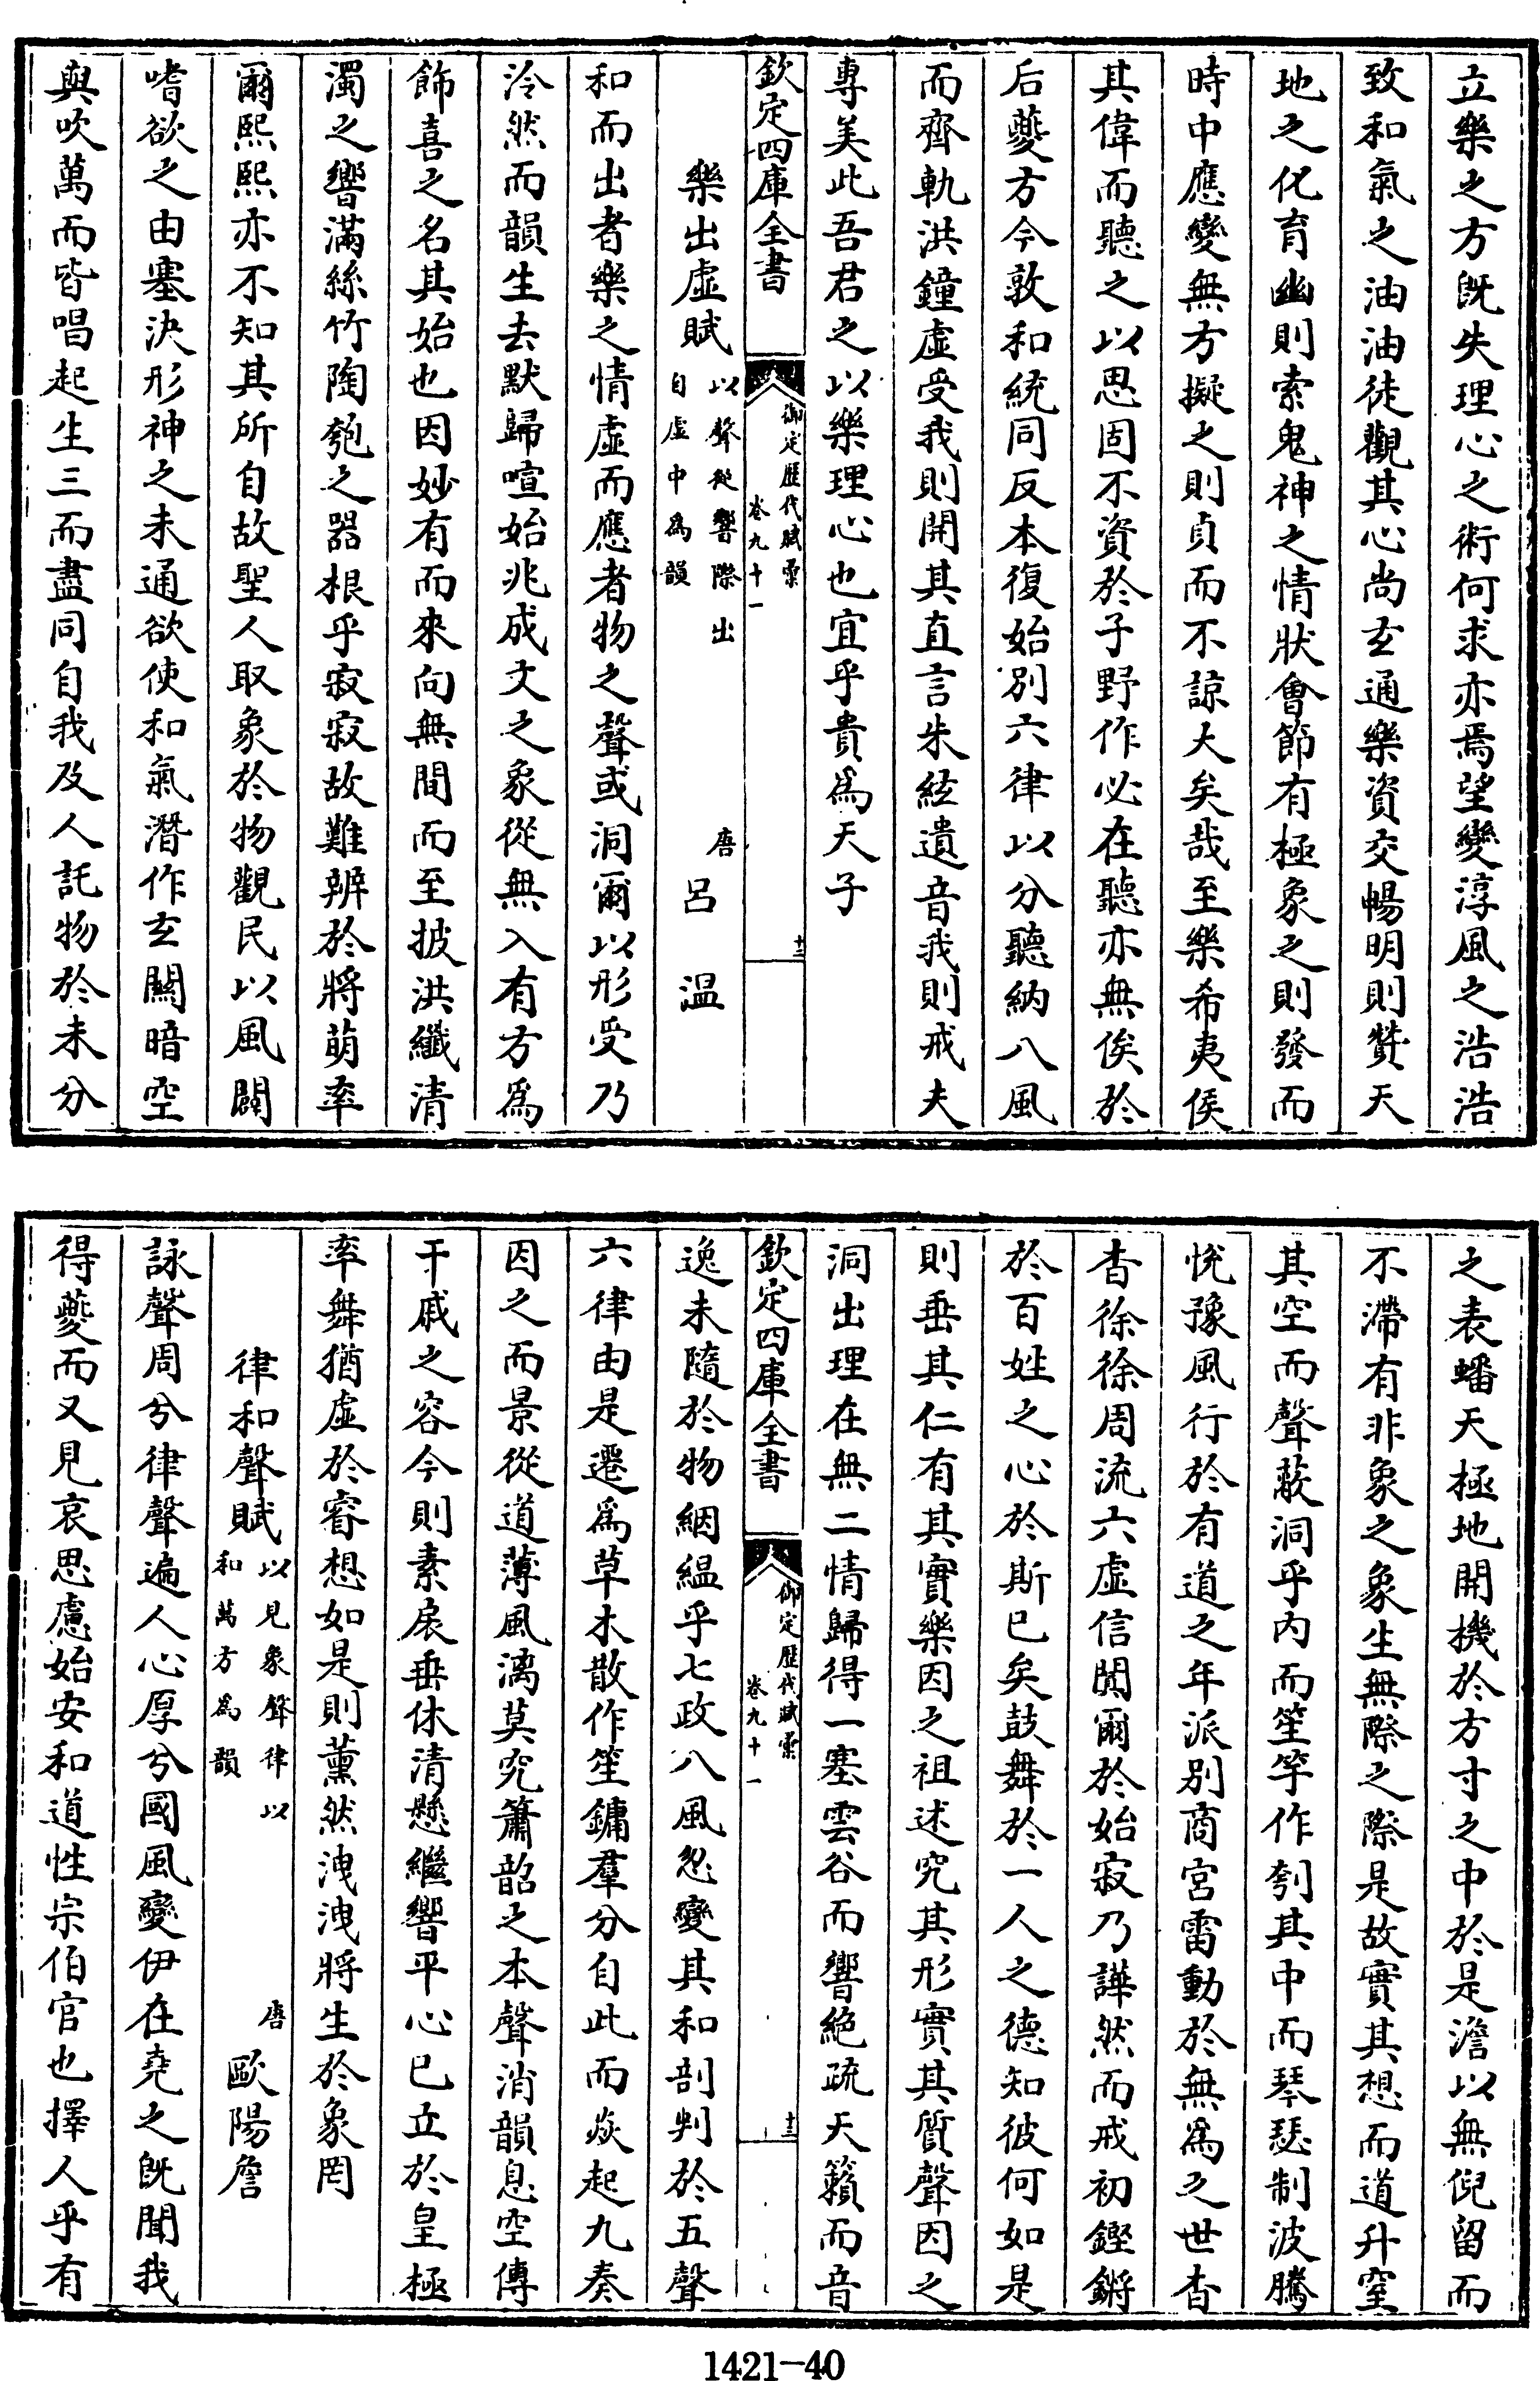 立樂之方旣失理心之術何求亦焉望變淳風之浩浩
致和氣之油油徒觀其心尚玄通樂資交暢明則贊天
地之化育幽則索鬼神之情狀會節有極象之則發而
時中應變無方擬之則貞而不諒大矣哉至樂希夷俟
其偉而聽之以思固不資於子野作必在聽亦無俟於
后夔方今敦和統同反本復始別六律以分聽納八風
而齊軌洪鐘虛受我則開其直言朱絃遺音我則戒夫
專美此吾君之以樂理心也宜乎貴為天子
欽定四庫全書
御定歷代賦彙
卷九十一
十三
樂出虛賦
以聲從響際出
自虛中為韻
唐呂溫
和而出者樂之情虛而應者物之聲或洞爾以形受乃
泠然而韻生去默歸喧始兆成文之象從無入有方為
飾喜之名其始也因妙有而來向無間而至披洪纖清
濁之響滿絲竹陶匏之器根乎寂寂故難辨於將萌率
爾熙熙亦不知其所自故聖人取象於物觀民以風闢
嗜欲之由塞決形神之未通欲使和氣潛作玄關暗空
與吹萬而皆唱起生三而盡同自我及人託物於未分
之表蟠天極地開機於方寸之中於是澹以無倪留而
不滯有非象之象生無際之際是故實其想而道升窒
其空而聲蔽洞乎內而笙竽作刳其中而琴瑟制波騰
悅豫風行於有道之年派別商宮雷動於無為之世杳
杳徐徐周流六虛信闃爾於始寂乃譁然而戒初鏗鏘
於百姓之心於斯已矣鼓舞於一人之德知彼何如是
則垂其仁有其實樂因之祖述究其形實其質聲因之
洞出理在無二情歸得一塞雲谷而響絕疏天籟而音
欽定四庫全書
御定歷代賦彙
卷九十一
十三
逸未隨於物絪縕乎七政八風忽變其和剖判於五聲
六律由是遷為草木散作笙鏞羣分自此而焱起九奏
因之而景從道薄風漓莫究簫韶之本聲消韻息空傳
干戚之容今則素扆垂休清懸繼響平心已立於皇極
率舞猶虛於睿想如是則薰然洩洩將生於象罔
律和聲賦
以見象聲律以
和萬方為韻
唐歐陽詹
詠聲周兮律聲遍人心厚兮國風變伊在堯之旣聞我
得夔而又見哀思慮始安和道性宗伯官也擇人乎有
1421-40